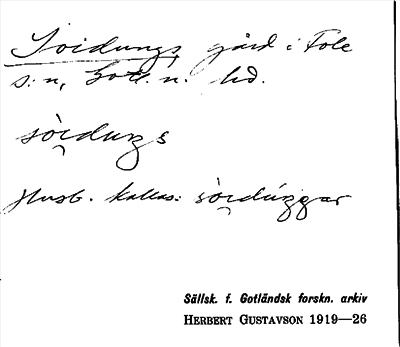 Soidungs, gård i Fole
s:n, Gotl. n. hd.
sòi̯duŋs
Husb. kallas: sòi̯dúŋgar
Sällsk. f. Gotländsk forskn. arkiv
HERBERT GUSTAVSON 1919—26